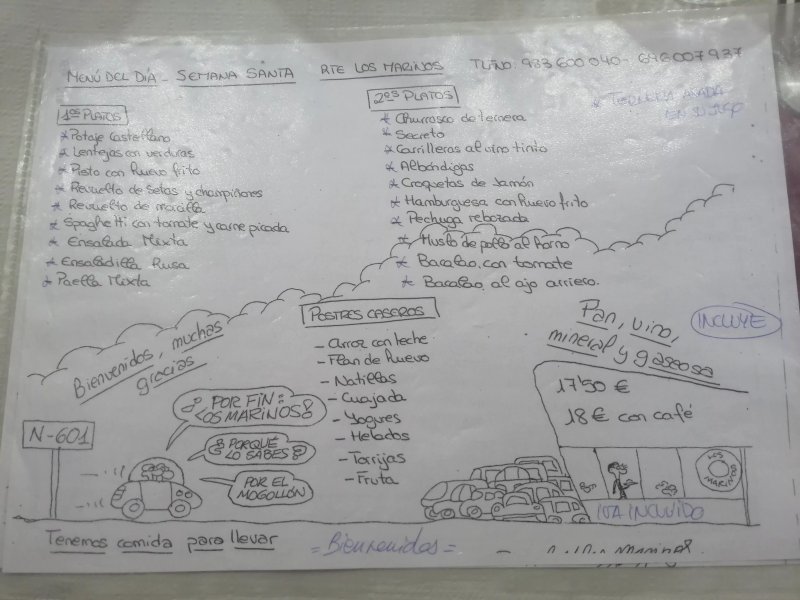 MENÚ DEL DÍA - SEMANA SANTA RTE LOS MARINOS TLFNO: 983 600 040 - 646007937
1os PLATOS
* Potaje Castellano
* Lentejas con verduras
* Pisto con huevo frito
* Revuelto de setas y champiñones
* Revuelto de morcilla
* Spaghetti con tomate y carne picada
* Ensalada Mixta
* Ensaladilla Rusa
* Paella Mixta
2os PLATOS
* Churrasco de ternera
* Secreto
* Carrilleras al vino tinto
* Albóndigas
* Croquetas de Jamón
* Hamburguesa con huevo frito
* Pechuga rebozada
* Muslo de pollo al horno
* Bacalao con tomate
* Bacalao al ajo arriero.
* TERNERA ASADA
EN SU JUGO
POSTRES CASEROS
- Arroz con leche
- Flan de huevo
- Natillas
- Cuajada
- Yogures
- Helados
- Torrijas
- Fruta
Bienvenidos, muchas
gracias
Pan, vino,
mineral y gaseosa
INCLUYE
17'50 €
18 € con café
N-601
¡¡ POR FIN:
LOS MARINOS!!
¿¿ PORQUÉ
LO SABES ??
POR EL
MOGOLLÓN
LOS
MARINOS
IVA INCLUIDO
Tenemos comida para llevar
= Bienvenidos =